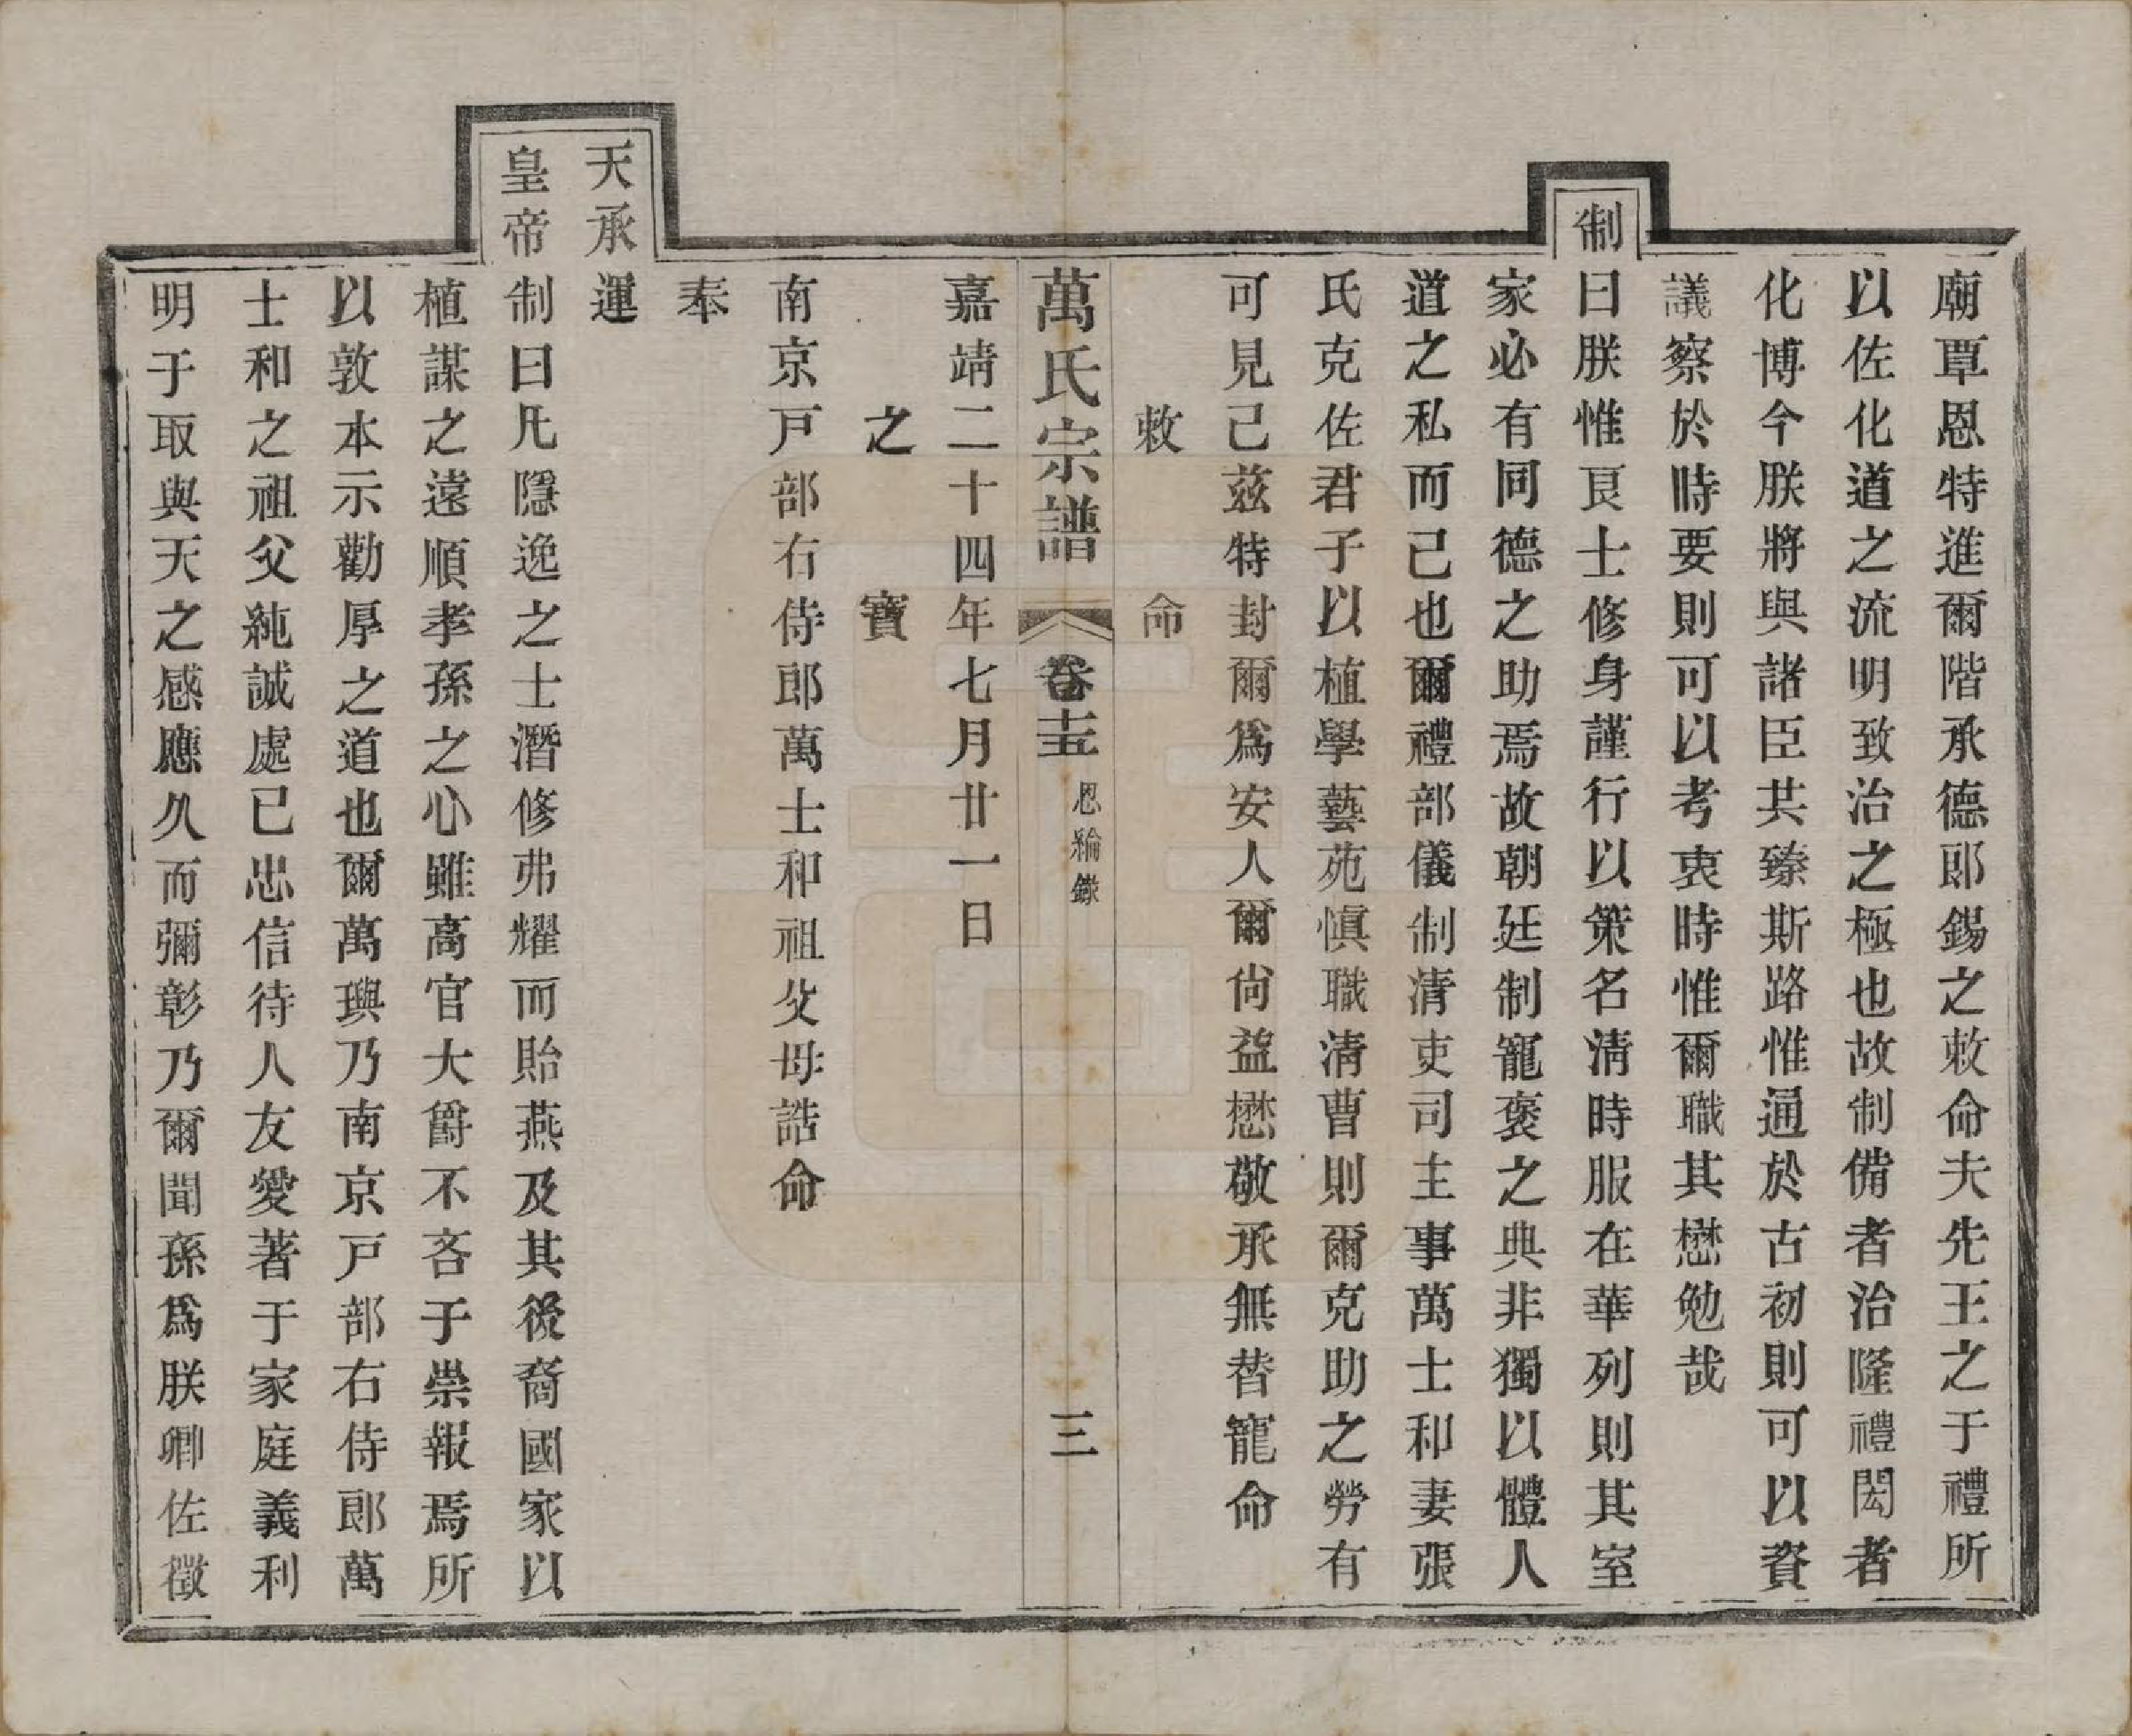 廟覃恩特進爾階承德郎錫之敕命夫先王之于禮所
以佐化道之流明致治之極也故制備者治隆禮閎者
化博今朕將與諸臣共臻斯路惟通於古初則可以資
議察於時要則可以考衷時惟爾職其懋勉哉
制曰朕惟良士修身謹行以策名清時服在華列則其室
家必有同德之助焉故朝廷制寵褒之典非獨以體人
道之私而已也爾禮部儀制清吏司主事萬士和妻張
氏克佐君子以植學藝苑慎職清曹則爾克助之勞有
可見已茲特封爾為安人爾尙益懋敬承無替寵命
敕命
萬氏宗譜 卷十五 恩綸錄 三
嘉靖二十四年七月廿一日
之寶
南京戸部右侍郎萬士和祖父母誥命
奉
天承運
皇帝制曰凡隱逸之士潛修弗耀而貽燕及其後裔國家以
植謀之遠順孝孫之心雖高官大爵不吝于崇報焉所
以敦本示勸厚之道也爾萬璵乃南京戸部右侍郎萬
士和之祖父純誠處已忠信待人友愛著于家庭義利
明于取與天之感應久而彌彰乃爾聞孫爲朕卿佐徵